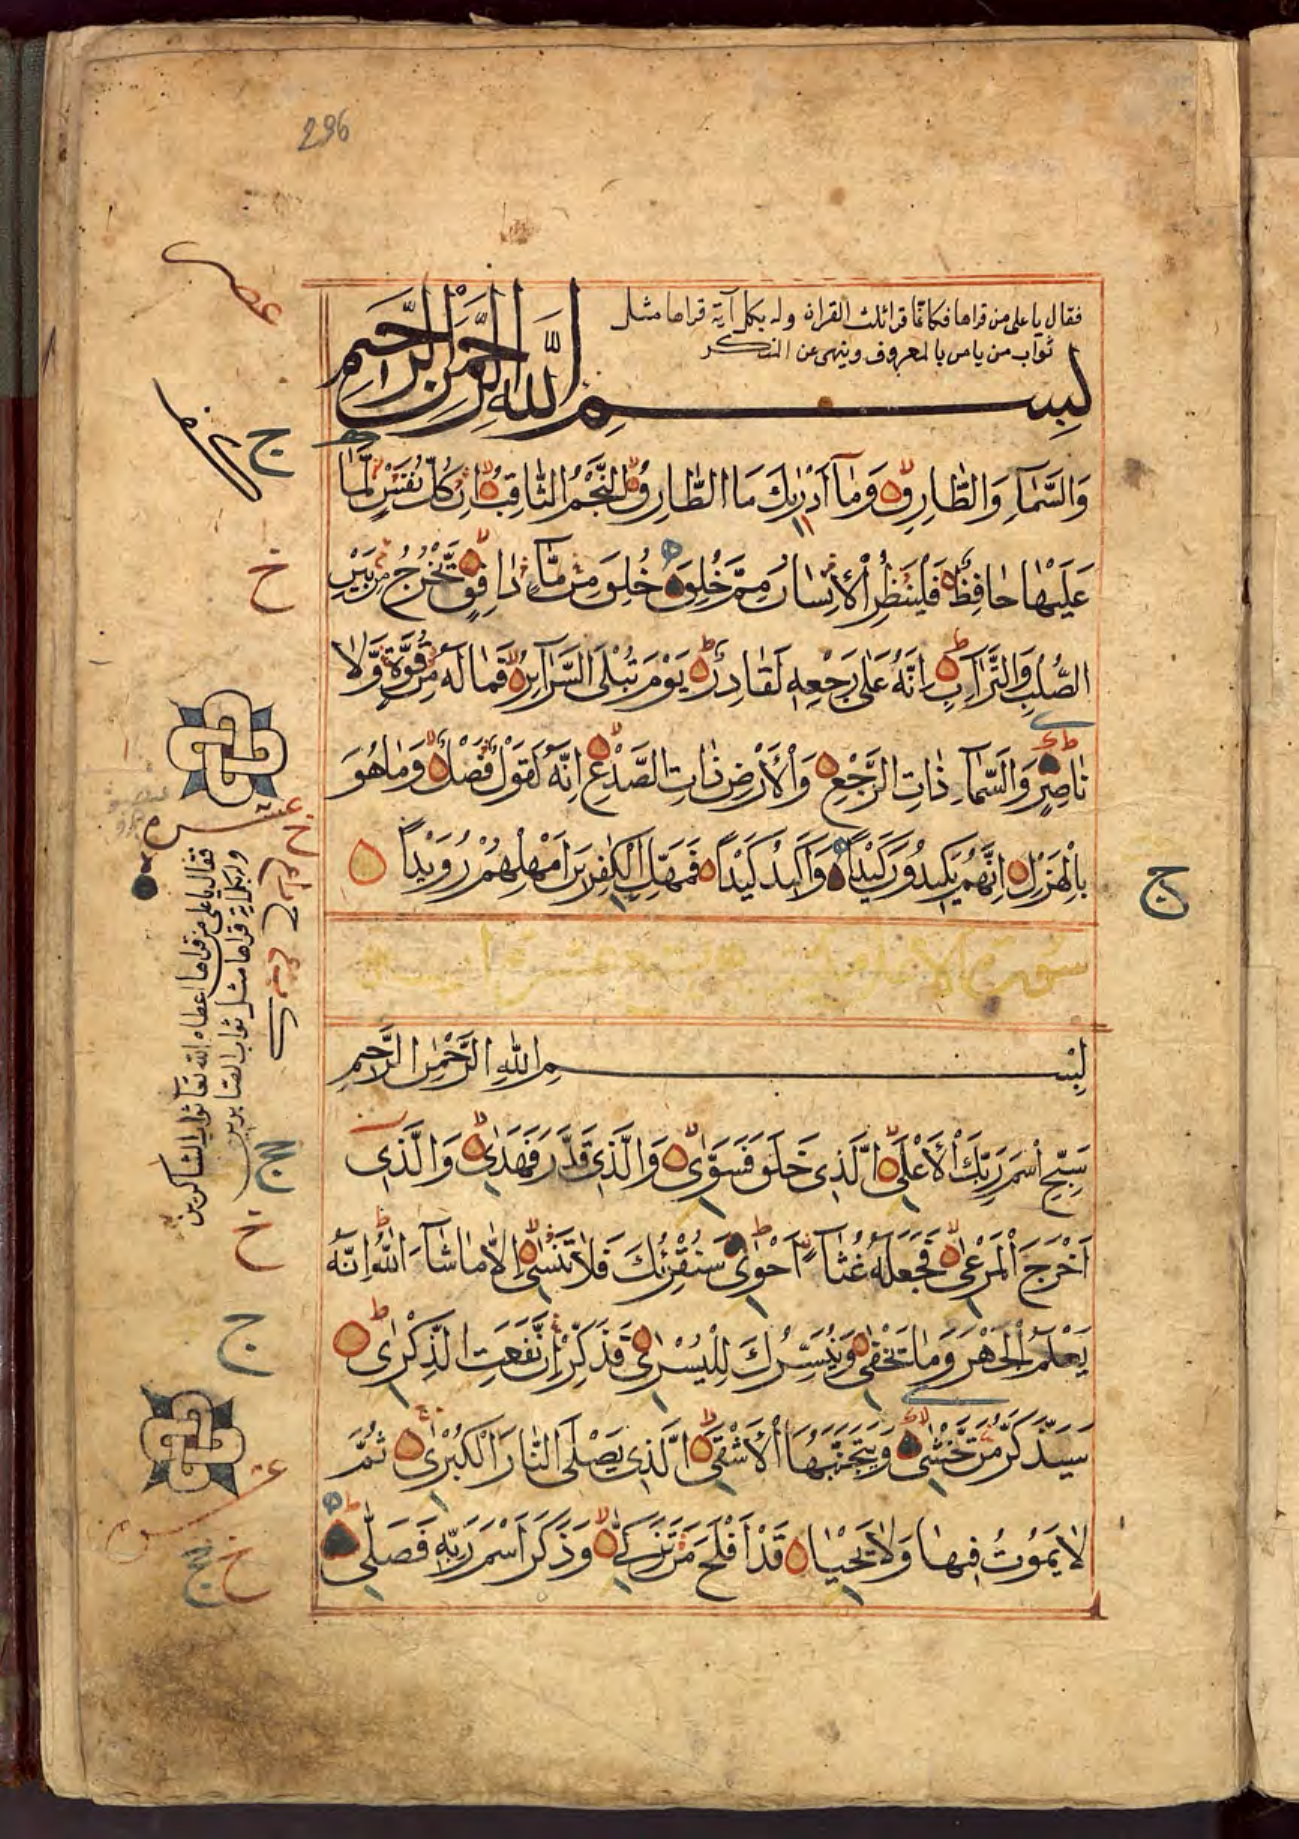 296
فقال يا على من قراها فكانما قرا ثلث القران وله بكل آية قراها مثل
ثواب من يامر بالمعروف وينهى عن المنكر
بِسْمِ اللّٰهِ الرَّحْمٰنِ الرَّحِيمِ
وَالسَّمَآءِ وَالطَّارِقِ وَمَآ اَدْرٰىكَ مَا الطَّارِقُ النَّجْمُ الثَّاقِبُ اِنْ كُلُّ نَفْسٍ لَّمَّا
عَلَيْهَا حَافِظٌ فَلْيَنْظُرِ الْاِنْسَانُ مِمَّ خُلِقَ خُلِقَ مِنْ مَّآءٍ دَافِقٍ يَّخْرُجُ مِنْ بَيْنِ
الصُّلْبِ وَالتَّرَآئِبِ اِنَّهُ عَلٰى رَجْعِهٖ لَقَادِرٌ يَوْمَ تُبْلَى السَّرَآئِرُ فَمَا لَهُ مِنْ قُوَّةٍ وَّلَا
نَاصِرٍ وَالسَّمَآءِ ذَاتِ الرَّجْعِ وَالْاَرْضِ ذَاتِ الصَّدْعِ اِنَّهُ لَقَوْلٌ فَصْلٌ وَمَا هُوَ
بِالْهَزْلِ اِنَّهُمْ يَكِيدُونَ كَيْدًا وَاَكِيدُ كَيْدًا فَمَهِّلِ الْكٰفِرِينَ اَمْهِلْهُمْ رُوَيْدًا
سورة الاعلى
بِسْمِ اللّٰهِ الرَّحْمٰنِ الرَّحِيمِ
سَبِّحِ اسْمَ رَبِّكَ الْاَعْلَى الَّذِى خَلَقَ فَسَوّٰى وَالَّذِى قَدَّرَ فَهَدٰى وَالَّذِى
اَخْرَجَ الْمَرْعٰى فَجَعَلَهُ غُثَآءً اَحْوٰى سَنُقْرِئُكَ فَلَا تَنْسٰى اِلَّا مَا شَآءَ اللّٰهُ اِنَّهُ
يَعْلَمُ الْجَهْرَ وَمَا يَخْفٰى وَنُيَسِّرُكَ لِلْيُسْرٰى فَذَكِّرْ اِنْ نَّفَعَتِ الذِّكْرٰى
سَيَذَّكَّرُ مَنْ يَّخْشٰى وَيَتَجَنَّبُهَا الْاَشْقَى الَّذِى يَصْلَى النَّارَ الْكُبْرٰى ثُمَّ
لَا يَمُوتُ فِيهَا وَلَا يَحْيٰى قَدْ اَفْلَحَ مَنْ تَزَكّٰى وَذَكَرَ اسْمَ رَبِّهٖ فَصَلّٰى
ج
خ
فقال يا على من قراها اعطاه الله تعا ثواب الشاكرين
وبكل اية قراها مثل ثواب الصابرين
خ
ج
خ
ج